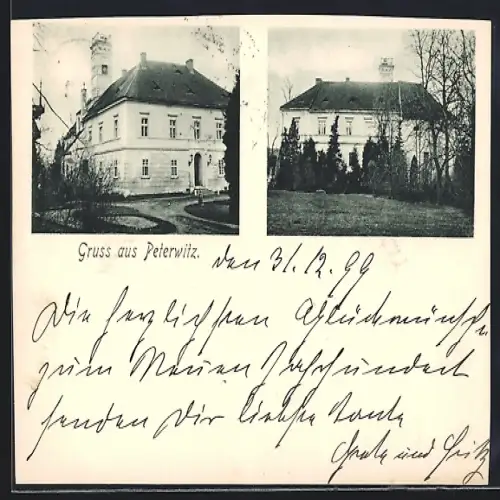 Gruss aus Peterwitz.
den 31.12.99
Die herzlichsten Glückwünsche
zum Neuen Jahrhundert
senden Dir liebste Tante
Grete und Fritz